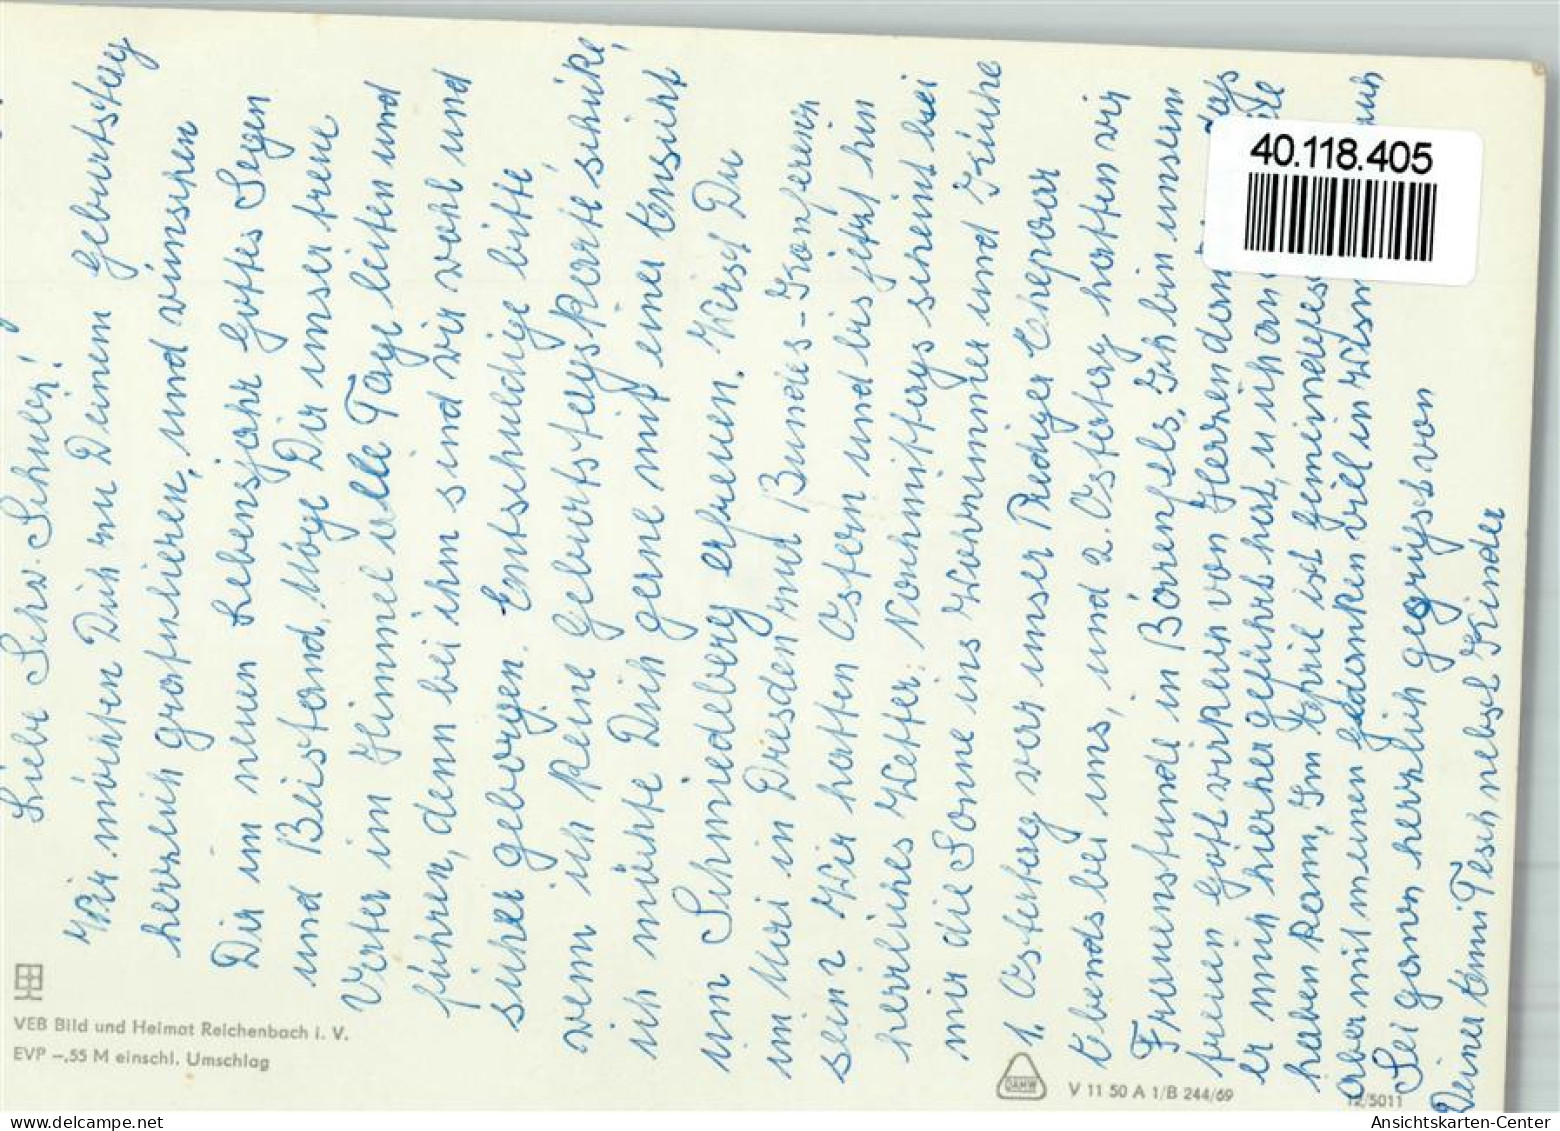 Liebe Schw. Schuer!
Wir möchten Dich zu Deinem Geburtstag
herzlich gratulieren, und wünschen
Dir im neuen Lebensjahr Gottes Segen
und Beistand. Möge Dir unser treue
Vater im Himmel alle Tage leiten und
führen, denn bei ihm sind wir wohl und
sicher geborgen. Entschuldige bitte,
wenn ich keine Geburtstagskarte schicke,
ich möchte Dich gerne mit einer Ansicht
von Schmiedeberg erfreuen. Wirst Du
im Mai in Dresden zur Bundes-Konferenz
sein? Wir hatten Ostern und bis jetzt hin
herrliches Wetter. Nachmittags scheint bei
mir die Sonne ins Wohnzimmer und Küche
1. Ostertag war unser Prediger Ehepaar
Abends bei uns, und 2. Ostertag hatten wir
Frauenstunde in Bärenfels. Ich bin unserm
treuen Gott von Herzen das
er mich hierher geführt hat, u ich an
haben kann, Im April ist Gemeindefes
aber mit meinen Gedanken viel in
Sei ganz herzlich gegrüsst von
Deiner Tesch nebst Kinder
VEB Bild und Heimat Reichenbach i. V.
EVP –,55 M einschl. Umschlag
DAMW
V 11 50 A 1/B 244/69
12/5011
40.118.405
Ansichtskarten-Center